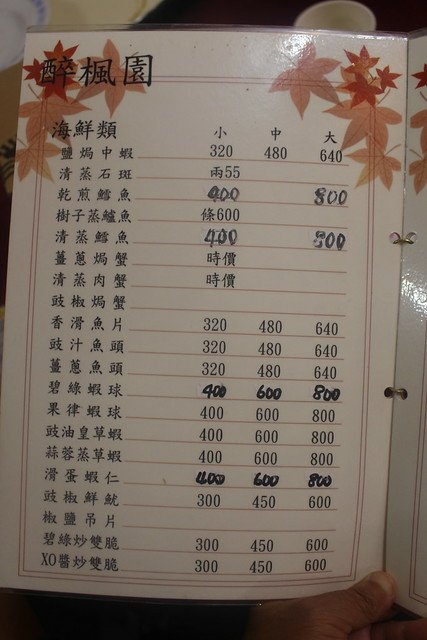 醉楓園
海鮮類 小 中 大
鹽焗中蝦 320 480 640
清蒸石斑 兩55
乾煎鱈魚 400 800
樹子蒸鱸魚 條600
清蒸鱈魚 400 800
薑蔥焗蟹 時價
清蒸肉蟹 時價
豉椒焗蟹
香滑魚片 320 480 640
豉汁魚頭 320 480 640
薑蔥魚頭 320 480 640
碧綠蝦球 400 600 800
果律蝦球 400 600 800
豉油皇草蝦 400 600 800
蒜蓉蒸草蝦 400 600 800
滑蛋蝦仁 400 600 800
豉椒鮮魷 300 450 600
椒鹽吊片
碧綠炒雙脆 300 450 600
XO醬炒雙脆 300 450 600